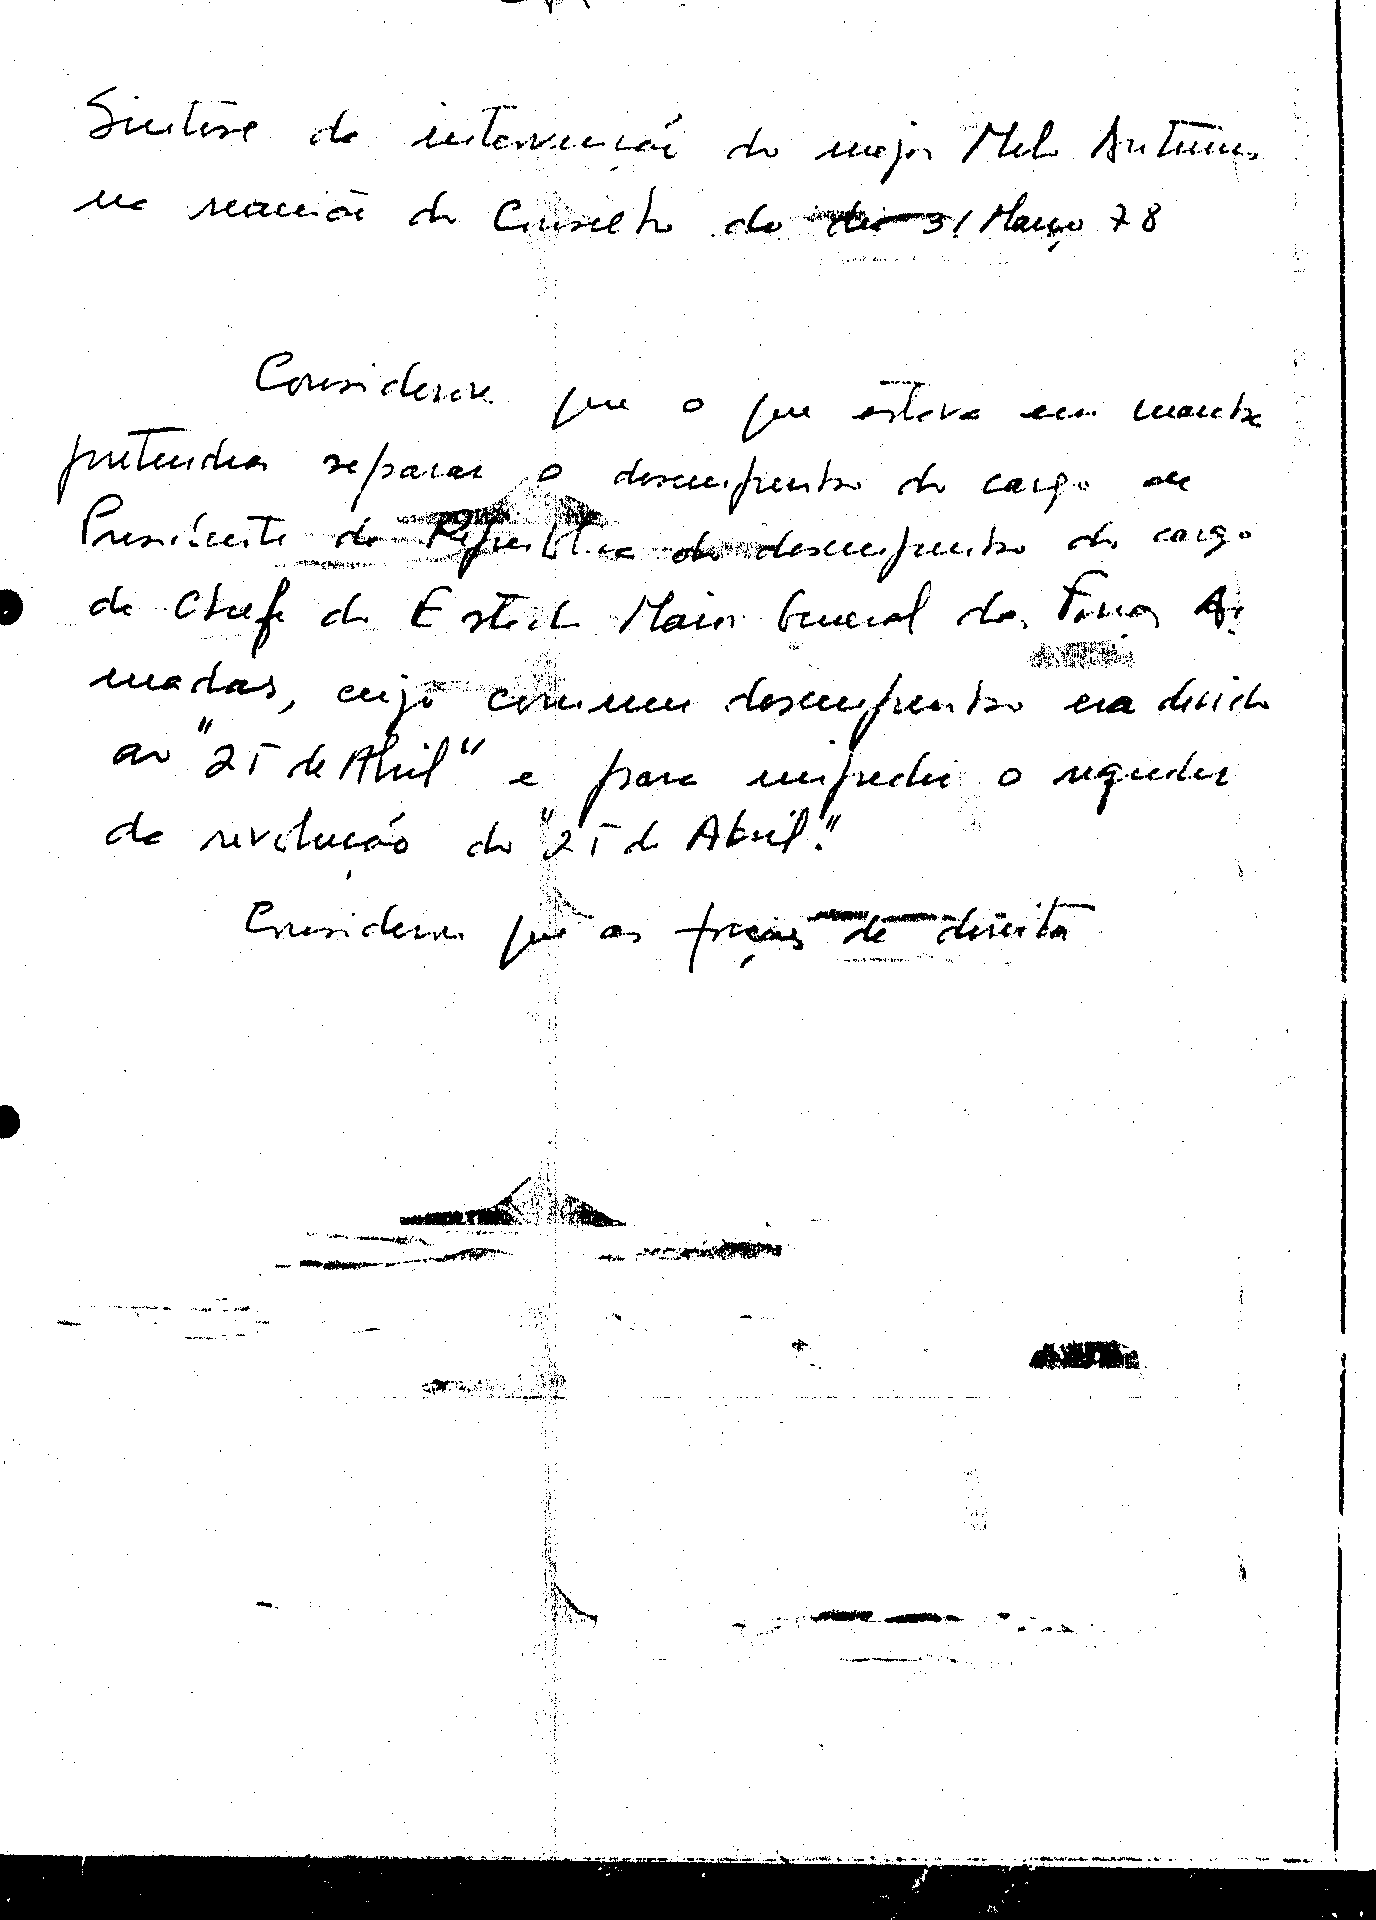 Síntese da intervenção do major Melo Antunes
na reunião do Conselho do dia 31 Março 78
Considerou que o que estava em marcha
pretendia separar o desempenho do cargo de
Presidente da República do desempenho do cargo
de Chefe do Estado Maior General das Forças Ar-
madas, cujo comum desempenho era devido
ao "25 de Abril" e para impedir o
da revolução do "25 de Abril".
Considerou que as forças de direita